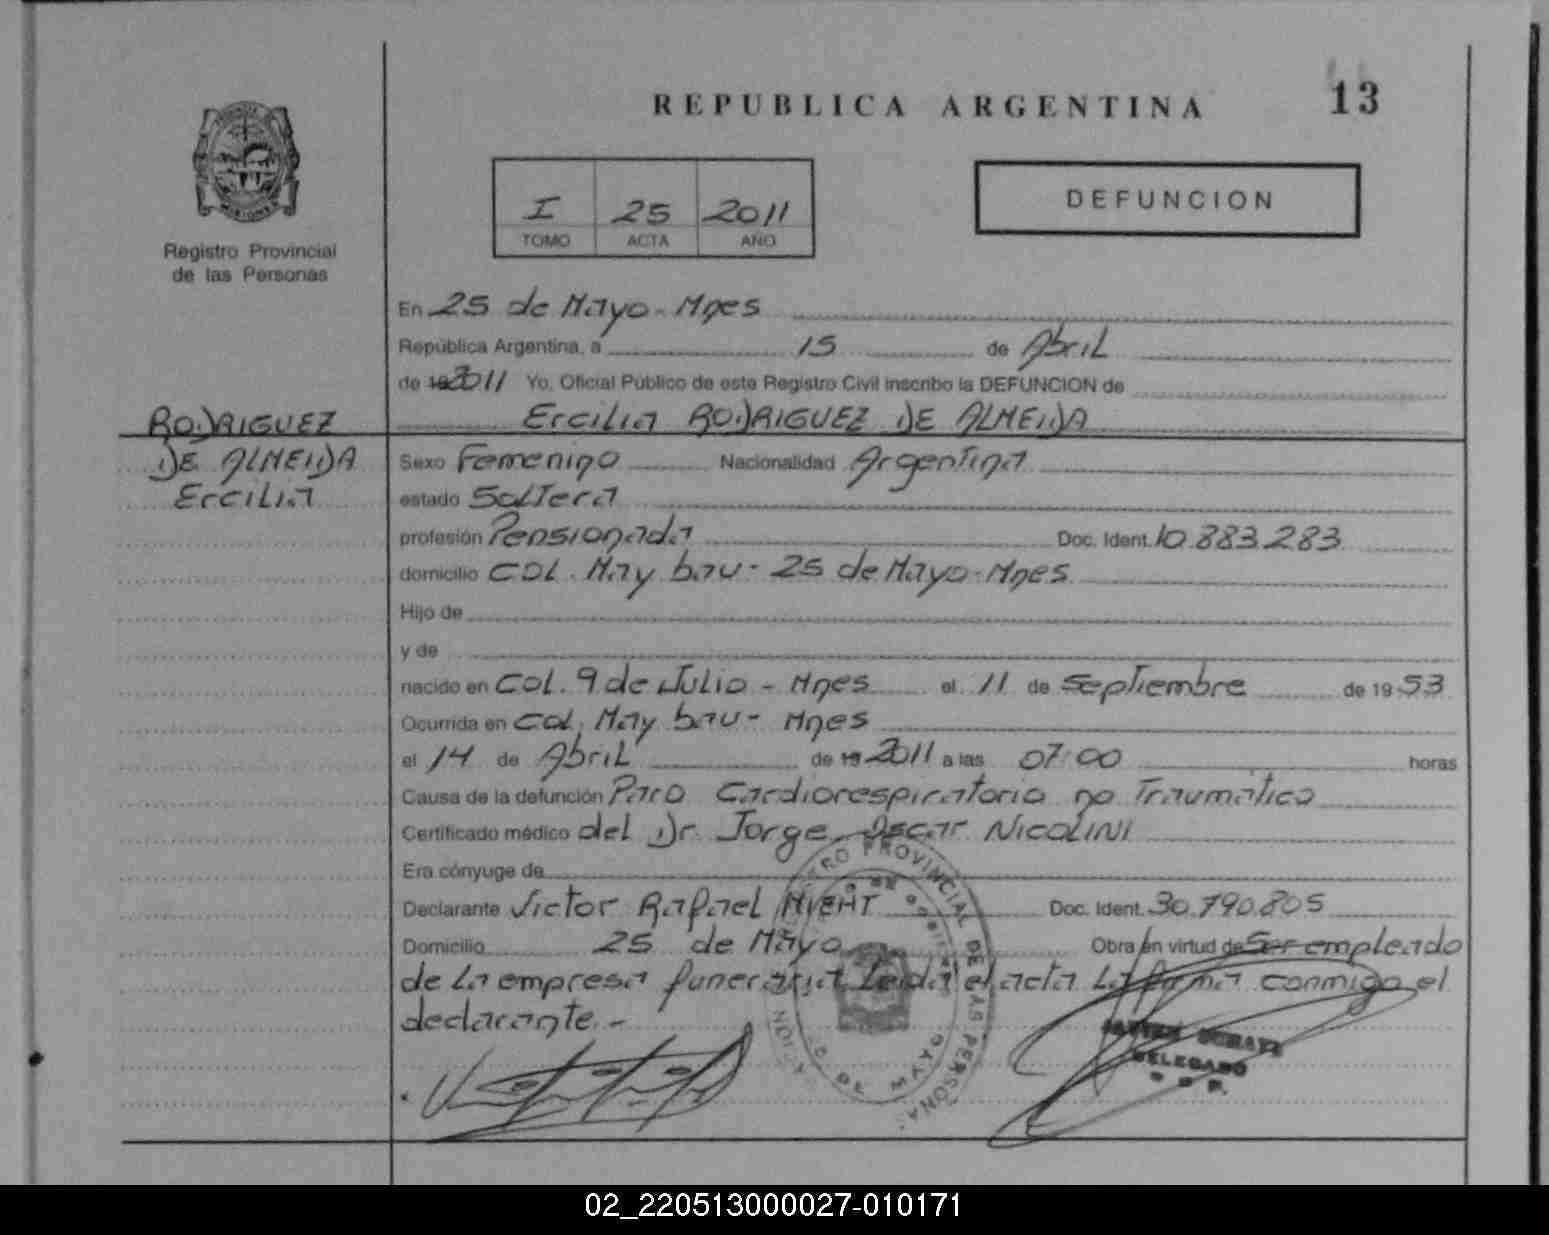 REPUBLICA ARGENTINA
13
I 25 2011
TOMO ACTA AÑO
DEFUNCION
Registro Provincial
de las Personas
RODRIGUEZ
DE ALMEIDA
Ercilia
En 25 de Mayo - Mnes
República Argentina, a 15 de Abril
de 19 2011 Yo, Oficial Público de este Registro Civil inscribo la DEFUNCION de
Ercilia RODRIGUEZ DE ALMEIDA
Sexo Femenino Nacionalidad Argentina
estado Soltera
profesión Pensionada Doc. Ident. 10.883.283
domicilio COL. May bau - 25 de Mayo - Mnes
Hijo de
y de
nacido en COL. 9 de Julio - Mnes el 11 de Septiembre de 1953
Ocurrida en Col. May bau - Mnes
el 14 de Abril de 19 2011 a las 07:00 horas
Causa de la defunción Paro Cardiorespiratorio no Traumático
Certificado médico del Dr. Jorge Oscar NICOLINI
Era cónyuge de
Declarante Victor Rafael Doc. Ident. 30.790.805
Domicilio 25 de Mayo Obra en virtud de Ser empleado
de La empresa funeraria Leida el acta La firma conmigo el
declarante.-
REGISTRO PROVINCIAL DE LAS PERSONAS
25 DE MAYO
DELEGADO
02_220513000027-010171